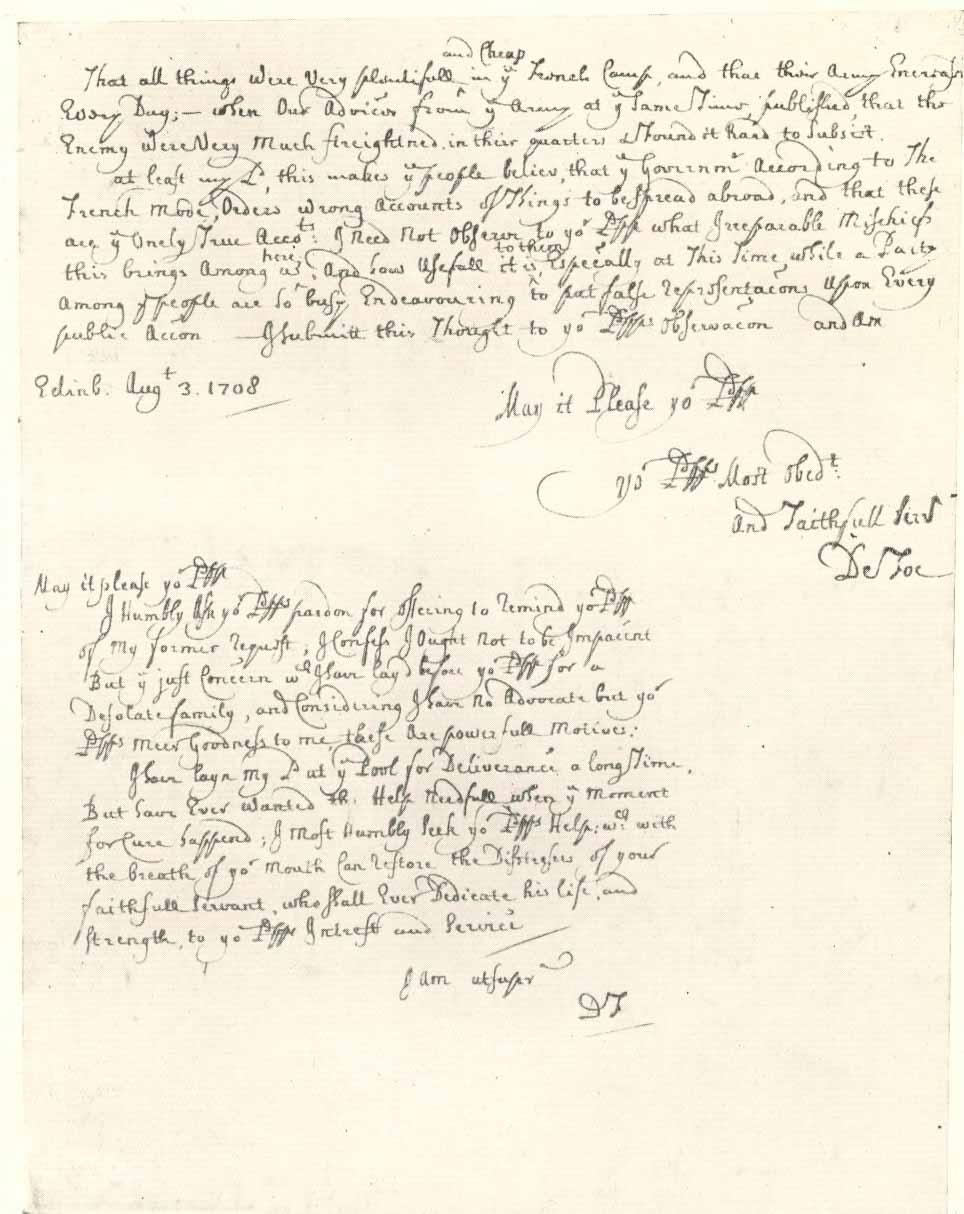 and Cheap
That all things were Very plentifull in yᵉ French Camp, and that their Army Encreased
Every Day; — when Our Advices from yᵉ Army at yᵉ Same Time published, that the
Enemy were Very Much streightned in their quarters & Found it Hard to Subsist.
at least my Lᵈ, this makes yᵉ people believ, that yᵉ Governmᵗ According to The
French Mode, Orders wrong Accounts of Things to be Spread abroad, and that these
are yᵉ Onely True Accoᵗˢ: I Need Not Observe to yoʳ Lᵈpp what Irreparable Mischief
here to them
this brings Among us, And how Usefull it is, Especially at This Time, while a Party
Among yᵉ people are So busy Endeavouring to put false Representac̃ons Upon Every
public Acc̃on — I Submitt this Thought to yoʳ Lᵈpps Observac̃on and Am
Edinb. Augᵗ 3. 1708
May it Please yoʳ Lᵈpp
yoʳ Lᵈpps Most Obedᵗ:
And Faithfull Servᵗ
De Foe
May it please yoʳ Lᵈpp
I Humbly Ask yoʳ Lᵈpps pardon for offering to Remind yoʳ Lᵈpp
of My former request; I Confess I Ought Not to be Impatient
But yᵉ just Concern wᶜʰ I have lay'd before yoʳ Lᵈpp for a
Desolate family, and Considering I have No Advocate but yoʳ
Lᵈpps meer Goodness to me, these Are powerfull Motives;
I have layn My Lᵈ at yᵉ Pool for Deliverance a long Time,
But have Ever wanted the Help Needfull when yᵉ Moment
for Cure happend; I Most Humbly Seek yoʳ Lᵈpps Help; wᶜʰ with
the breath of yoʳ Mouth Can restore the Distresses of your
faithfull Servant, who shall Ever Dedicate his life, and
Strength, to yoʳ Lᵈpps Intrest and Service
I Am ut super
DF